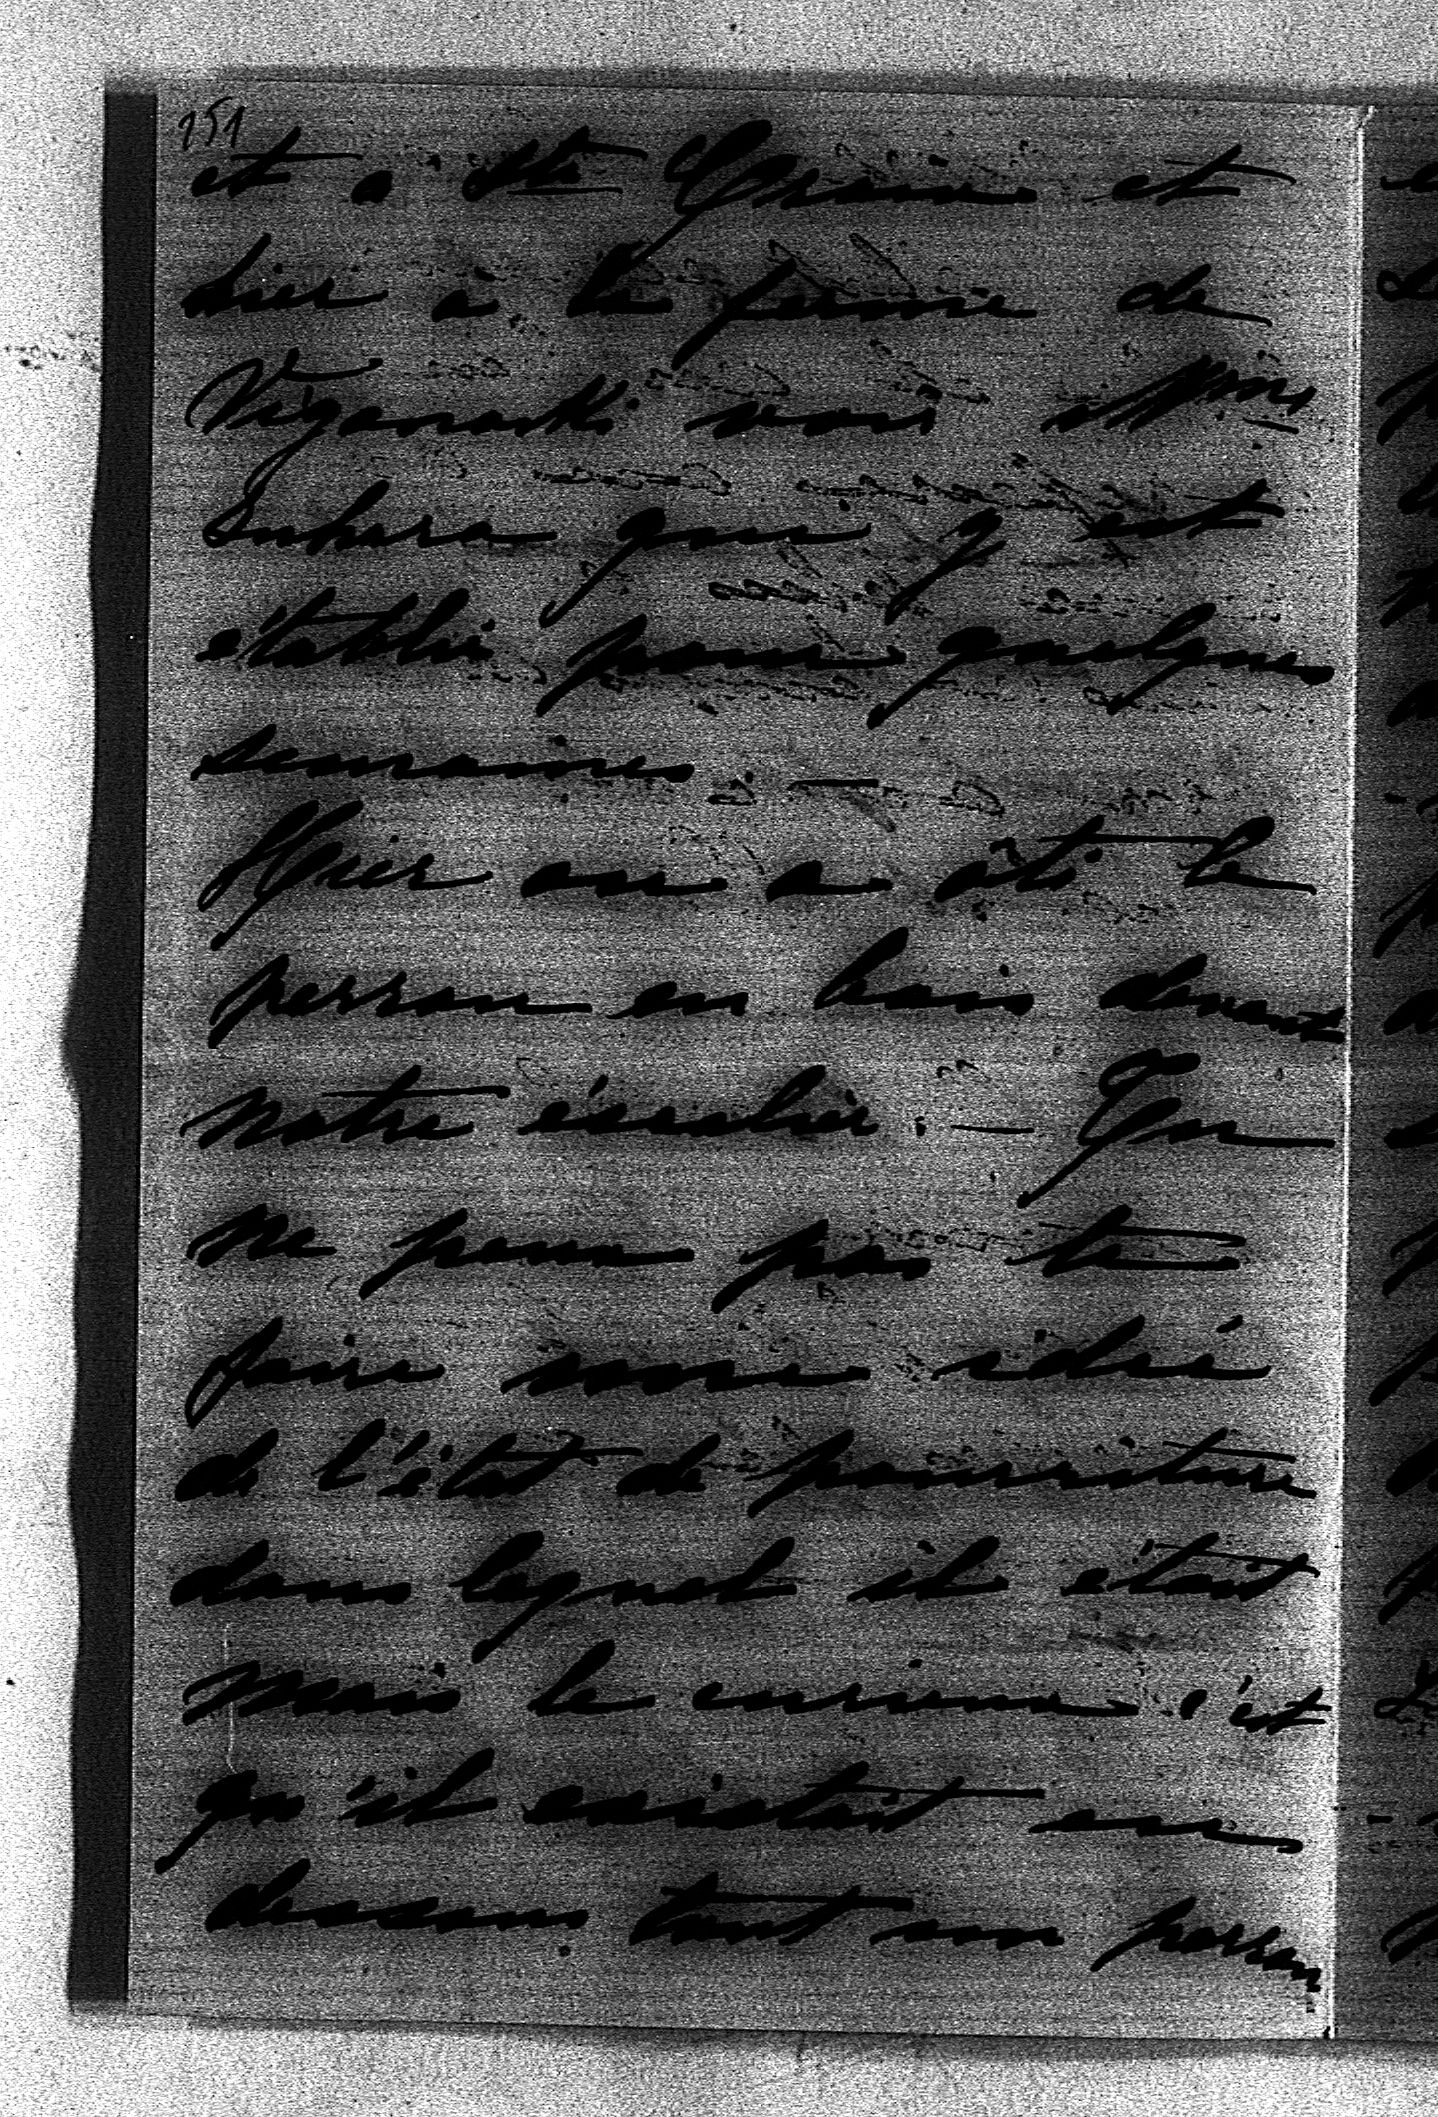 151
et à Ste Ursine et
hier à la ferme de
Viganoski voir Mme
Suhara qui y est
établie pour quelques
semaines. —
Hier on a ôté le
perron en bois devant
notre escalier. — Tu
ne peux pas te
faire une idée
de l'état de pourriture
dans lequel il était
mais le curieux c'est
qu'il existait en
dessous tout un perron